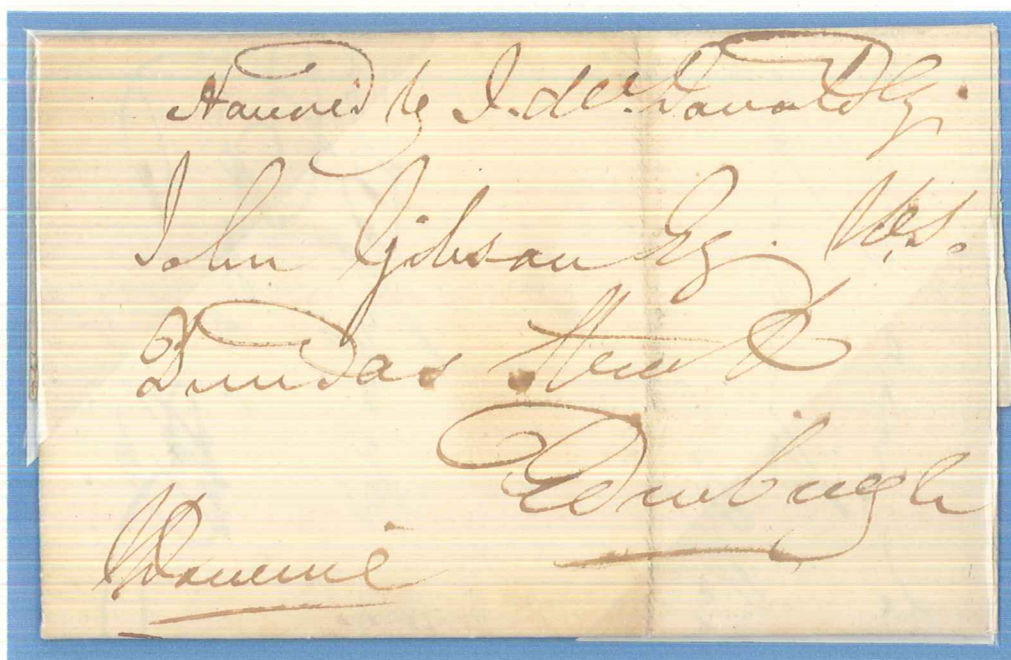 Favored by J. McDonald Esq.
John Gibson Esq. W.S.
Dundas Street
Edinburgh